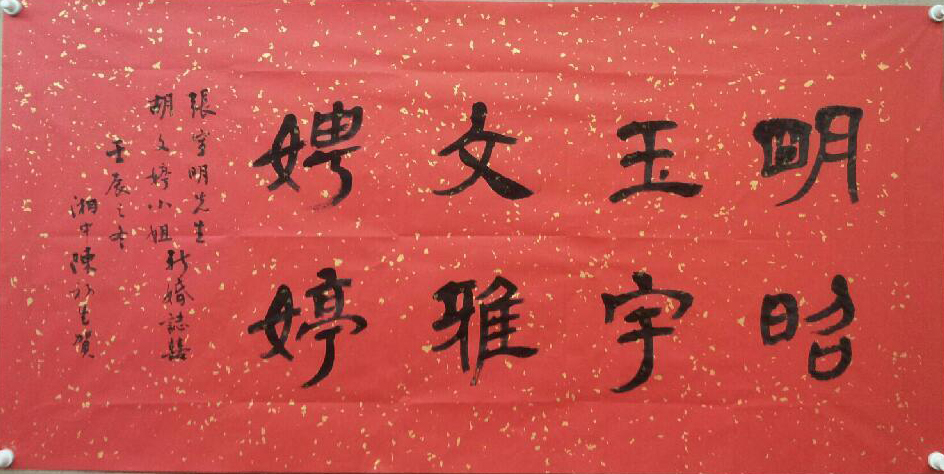 明昭
玉宇
文雅
娉婷
張宇明先生
胡文婷小姐
新婚誌禧
壬辰之冬
湘中陳初生賀